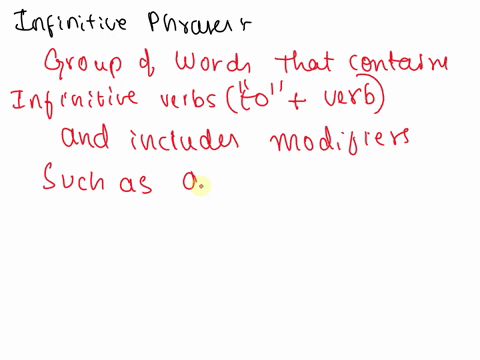 Infinitive Phrases
Group of words that contains
Infinitive verbs ("to" + verb)
and includes modifiers
Such as a